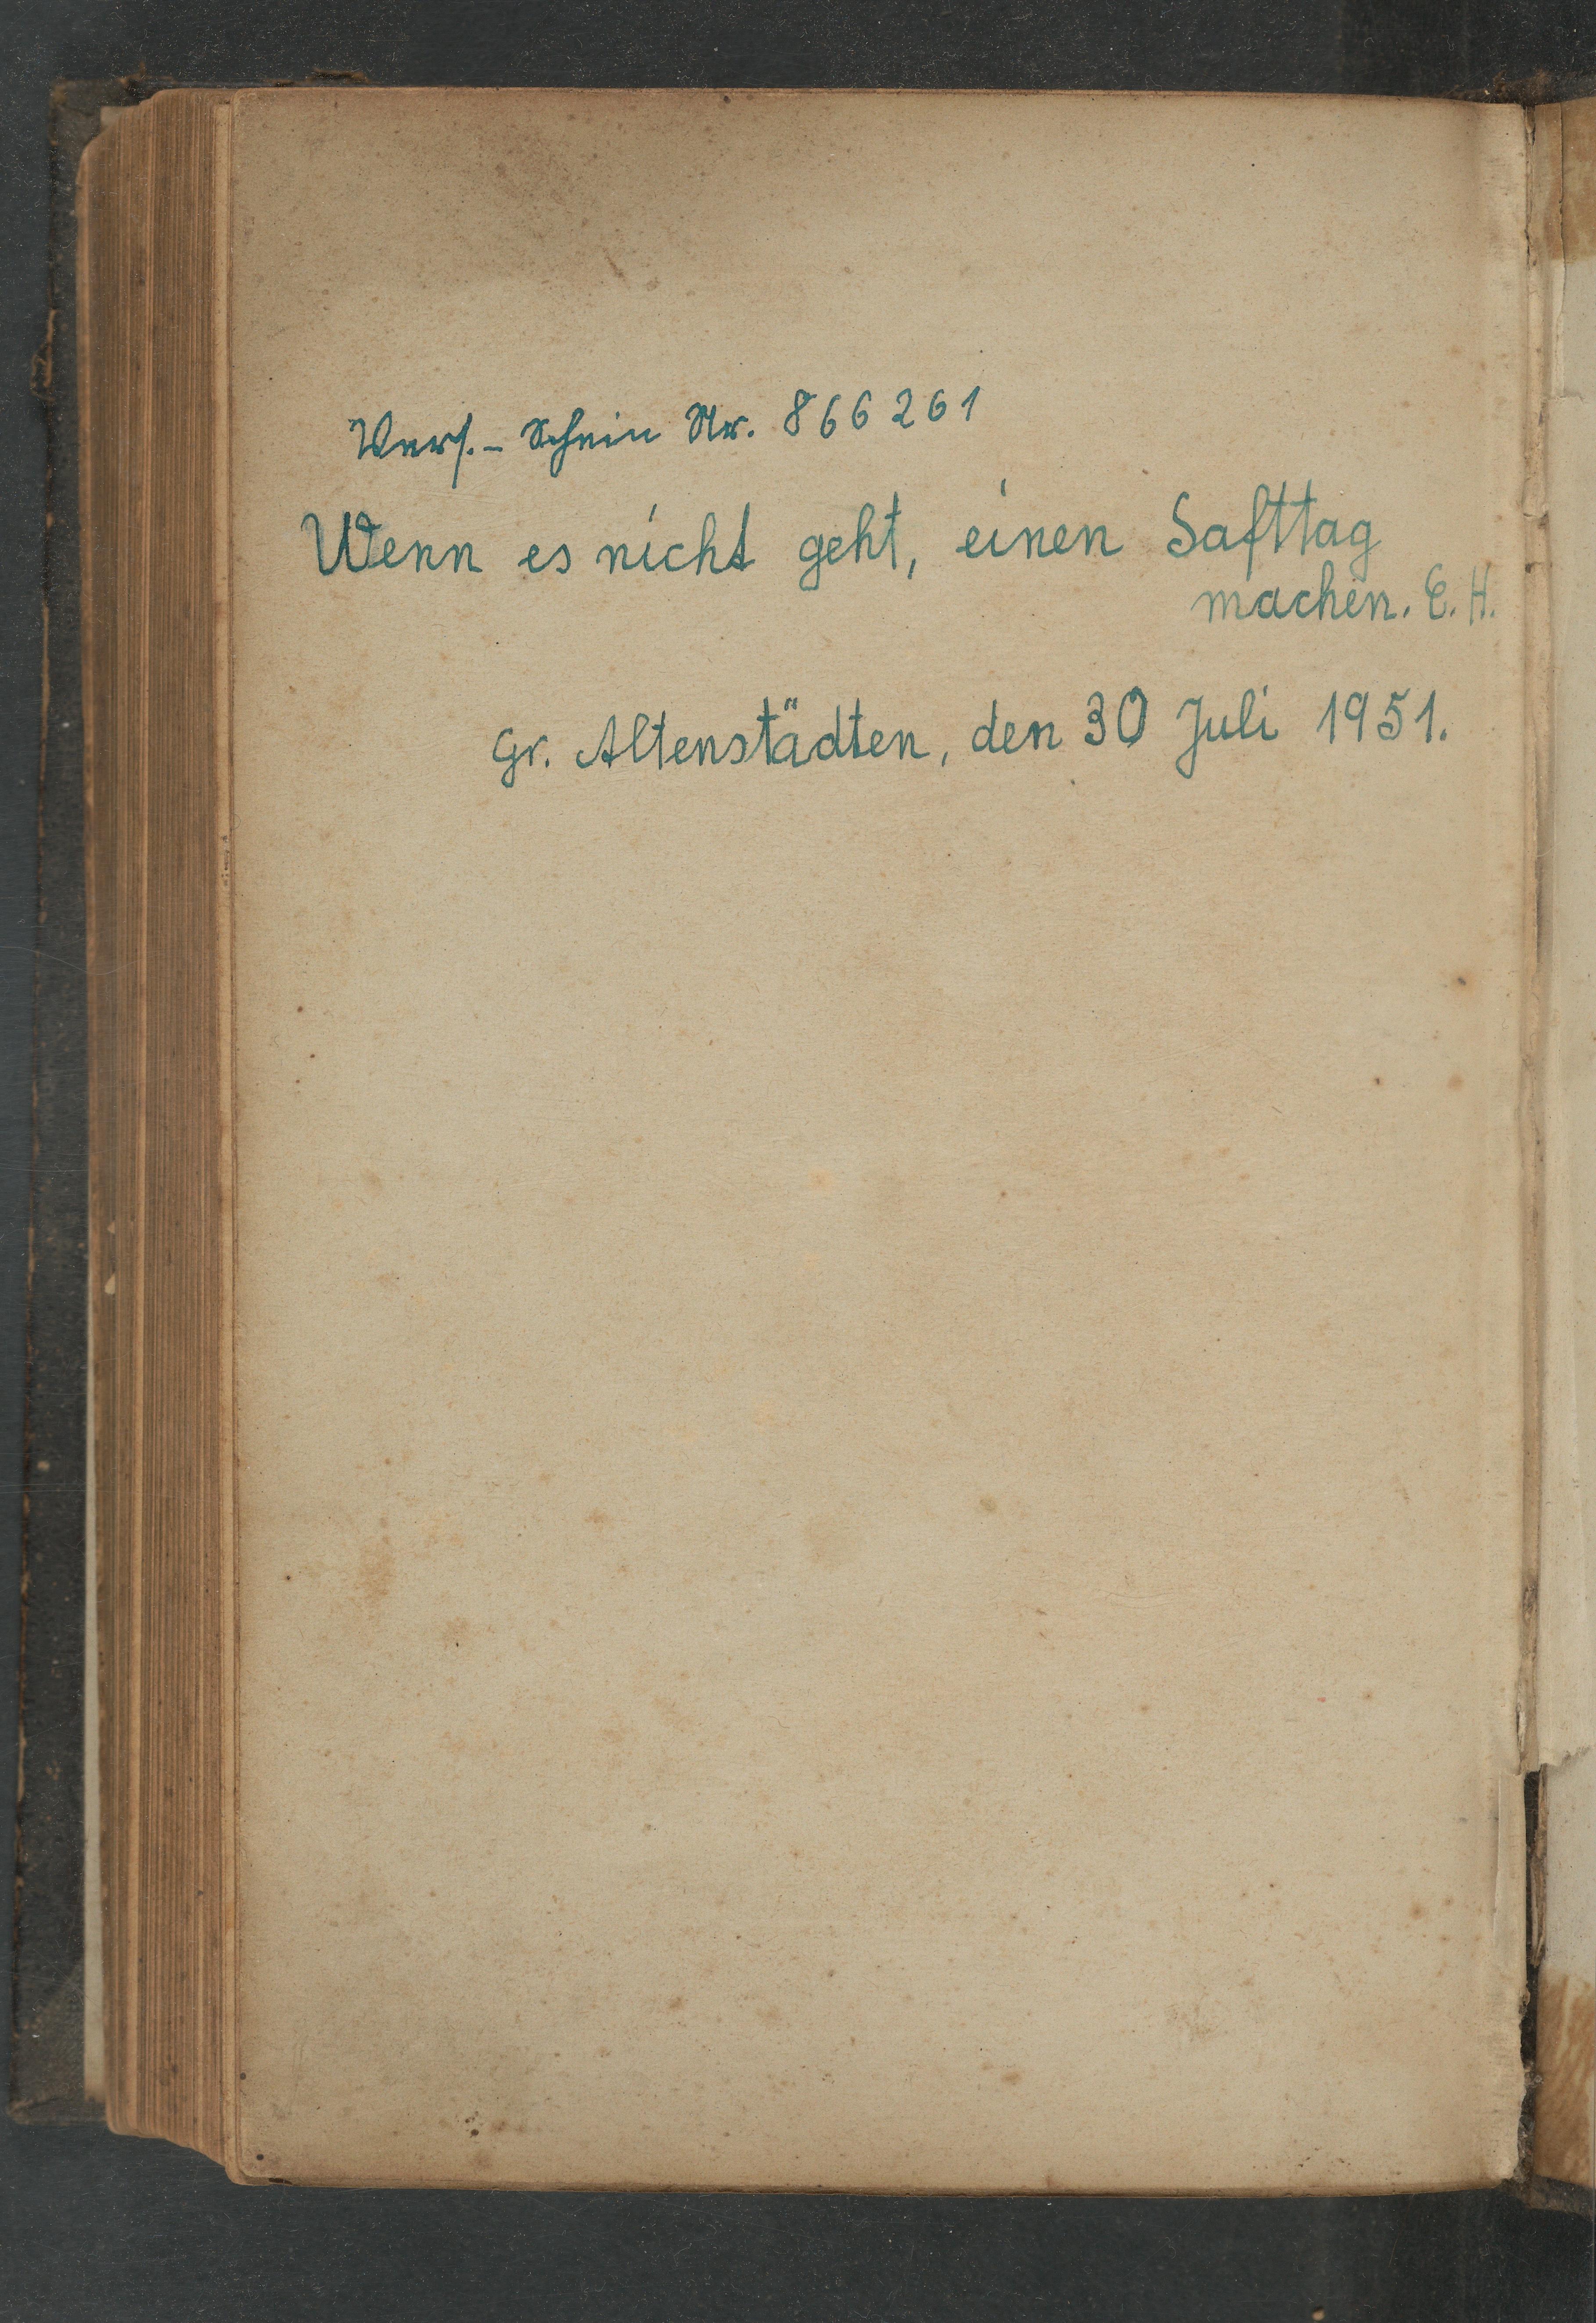 Vers.-Schein Nr. 866261
Wenn es nicht geht, einen Safttag
machen. E. H.
Gr. Altenstädten, den 30 Juli 1951.